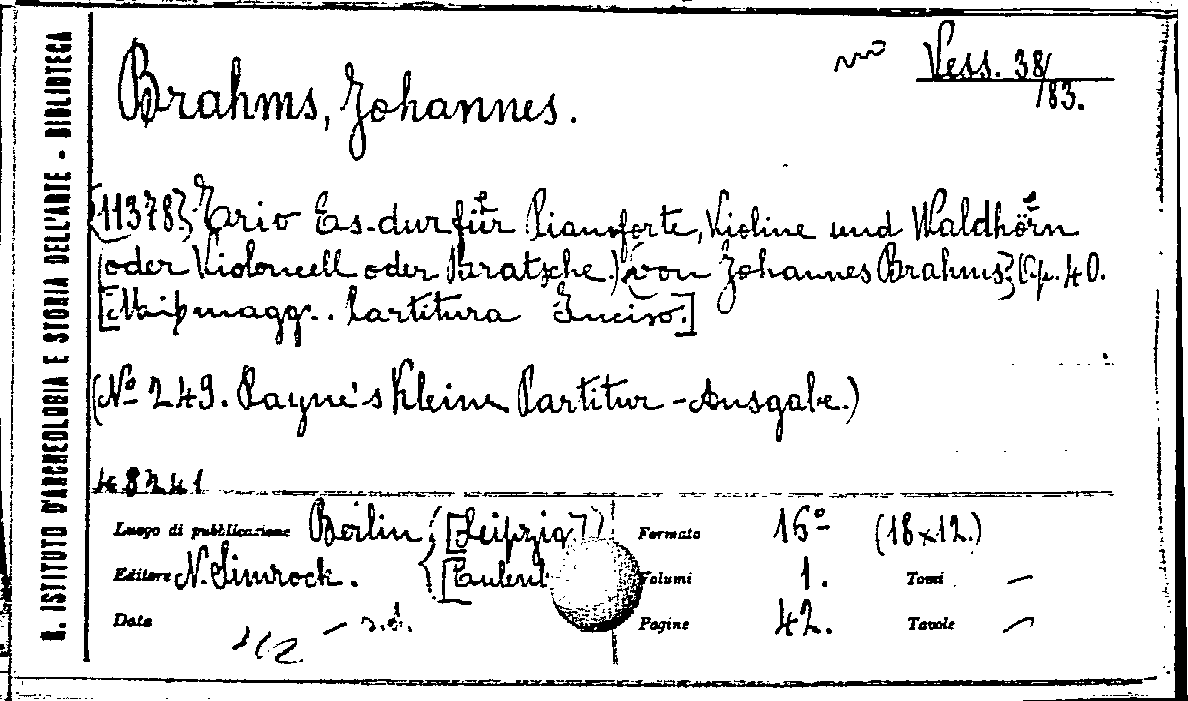 R. ISTITUTO D'ARCHEOLOGIA E STORIA DELL'ARTE - BIBLIOTECA
Vess. 38/
/83.
Brahms, Johannes.
{11378} Trio Es-dur für Pianoforte, Violine und Waldhörn
(oder Violoncell oder Bratsche.) {von Johannes Brahms} Op. 40.
[Mi♭ magg.. Partitura Inciso.]
(Nº 249. Payne's Kleine Partitur-Ausgabe.)
48241
Luogo di pubblicazione Berlin {[Leipzig]} Formato 16º (18x12.)
Editore N. Simrock. {[Eulenb Volumi 1. Tomi —
Data — s.d. Pagine 42. Tavole —